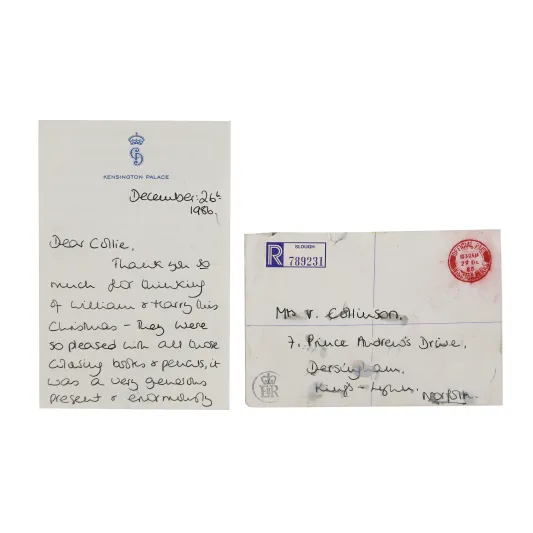 KENSINGTON PALACE
December. 26th
1986.
Dear Collie,
Thank you so
much for thinking
of William & Harry this
Christmas - they were
so pleased with all those
colouring books & pencils, it
was a very generous
present & enormously
SLOUGH
R 789231
Mr V. Collinson.
7, Prince Andrew's Drive,
Dersingham.
King's - Lynn.
Norfolk.
EIIR